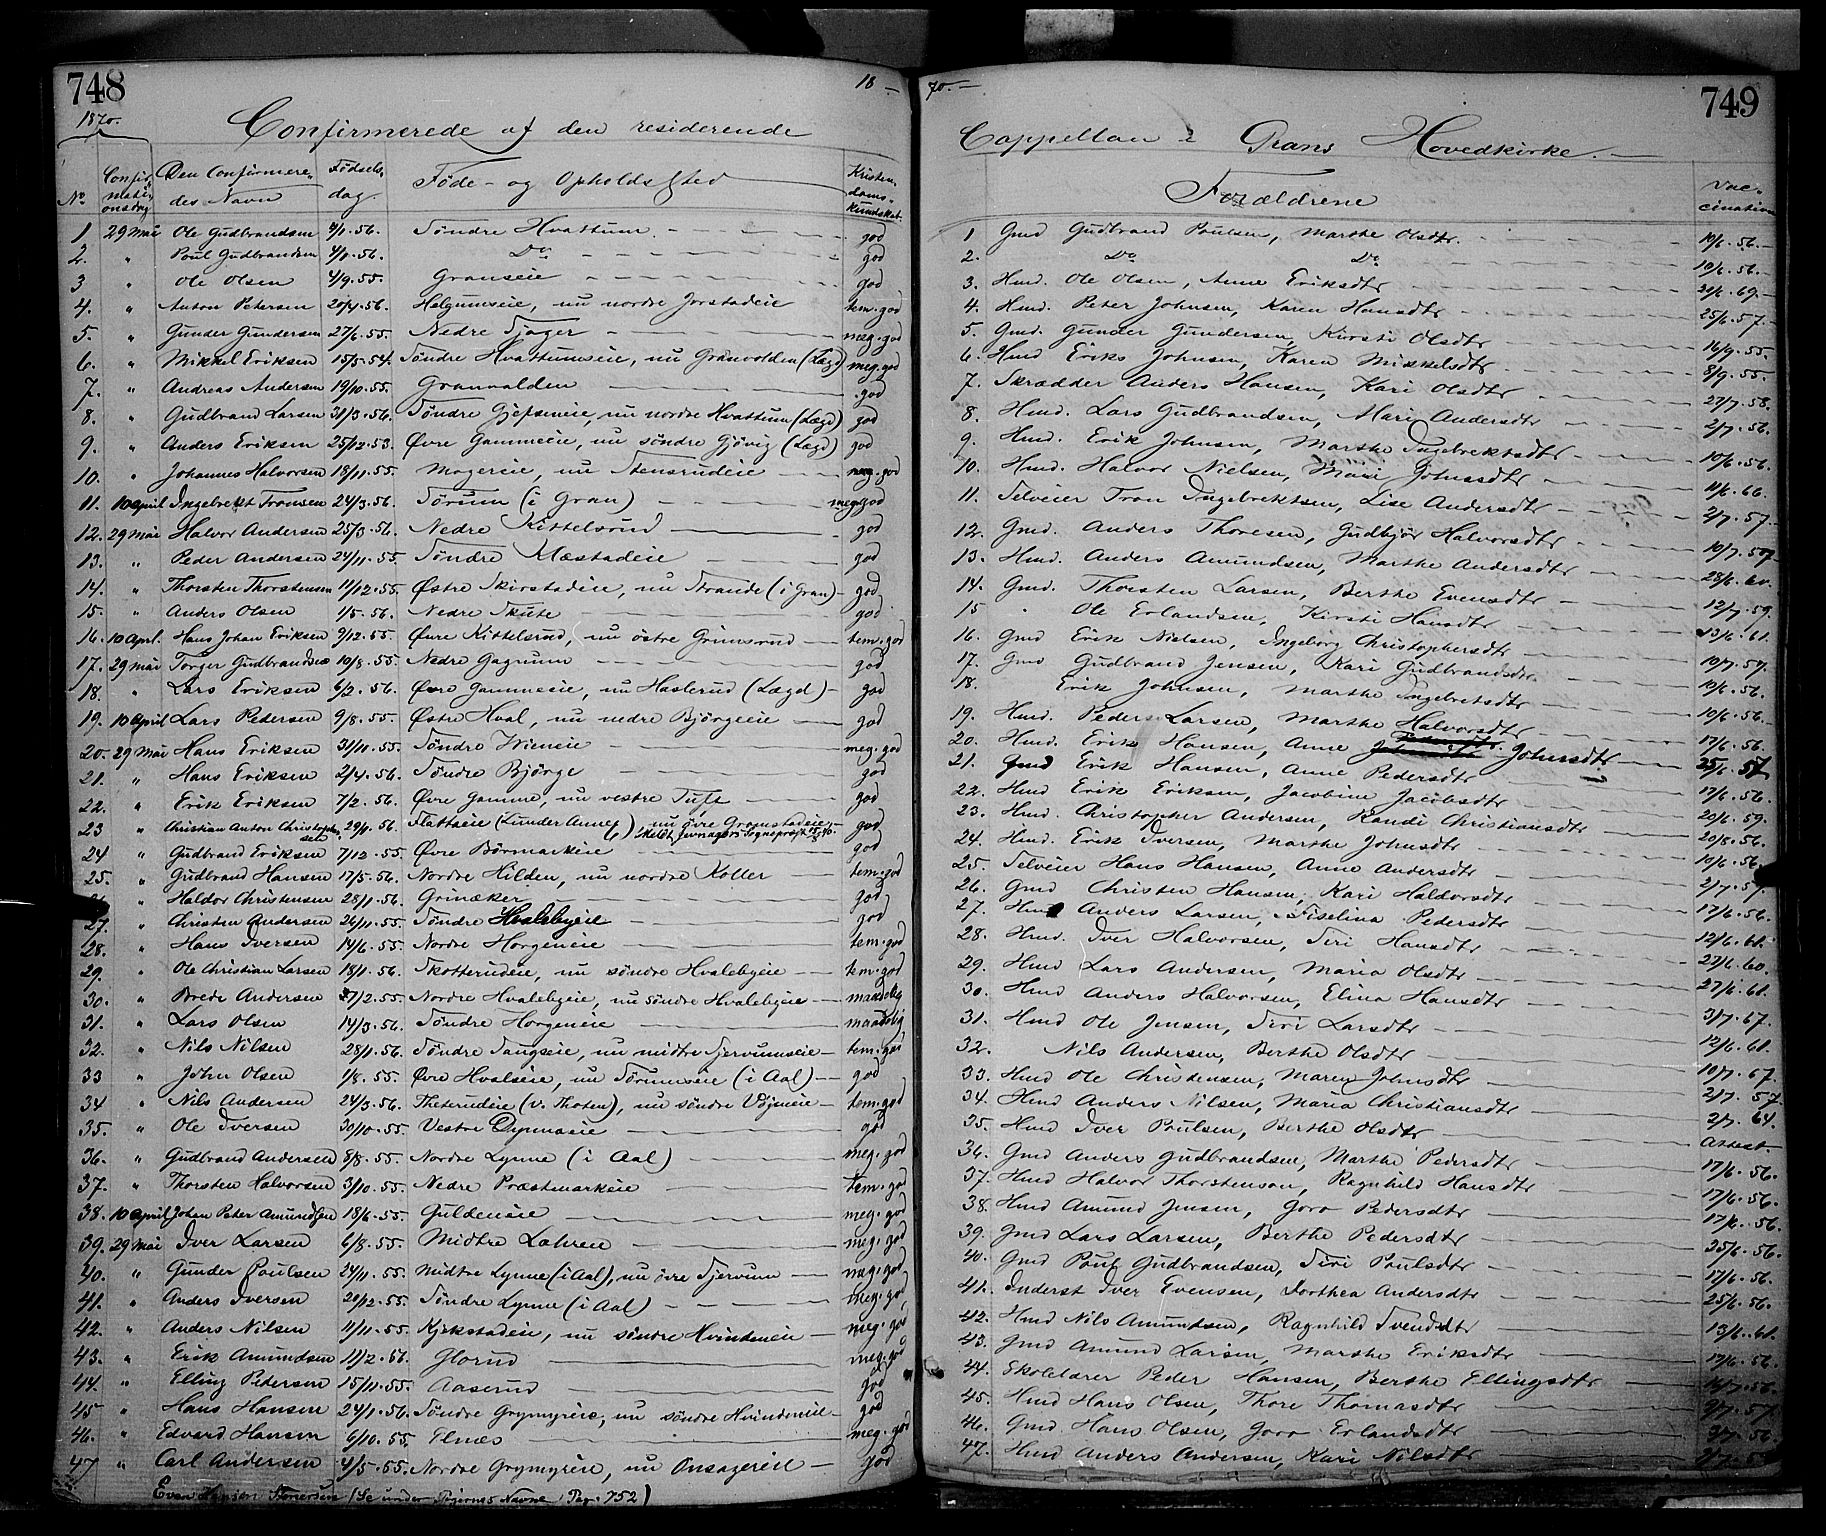 748
18 —
1870.
Confirmerede af den residerende
No
Confirmationsdag
Den Confirmeredes Navn
Fødselsdag
Føde- og Opholdssted
Kristendomskundskab.
1 29 Mai Ole Gudbrandsen 4/1.56. Søndre Hvattum. god
2. " Poul Gudbrandsen 4/1.56. Do god
3 " Ole Olsen 4/9.55. Granseie god
4. " Anton Petersen 20/4.56. Helgumseie, nu nordre Jorstadeie tem. god
5. " Gunder Gundersen 27/6.55. Nedre Tjager meg. god
6. " Mikkel Eriksen 15/5.54. Søndre Hvattumseie, nu Granvolden (Lægd) meg. god
7. " Andreas Andersen 19/10.55. Granvolden god
8. " Gudbrand Larsen 31/3.56. Søndre Gjefseneie, nu nordre Hvattum (Lægd) god
9. " Anders Eriksen 25/12.53. Øvre Gammeeie, nu søndre Gjövig (Lægd) god
10. " Johannes Halvorsen 18/11.55. Mogereie, nu Stensrudeie meg. god
11. 10 april Ingebrekt Tronsen 24/3.56. Sørum (i Gran) meg. god
12. 29 Mai Halvor Andersen 25/3.56. Nedre Kittelsrud god
13. " Peder Andersen 24/11.55. Søndre Mæstadeie god
14. " Thorsten Thorstensen 11/12.55. Østre Skirstadeie, nu Strande (i Gran) god
15. " Anders Olsen 1/5.56. Nedre Skute god
16. 10 April. Hans Johan Eriksen 9/12.55. Øvre Kittelsrud, nu östre Grimsrud tem. god
17. 29 Mai Torger Gudbrandsen 10/8.55. Nedre Gagnum god
18. " Lars Eriksen 6/2.56. Øvre Gammeeie, nu Haslerud (Lægd) god
19. 10 April Lars Pedersen 9/8.55. Østre Hval, nu nedre Bjørgeeie god
20. 29 Mai Hans Eriksen 31/11.55. Søndre Wieneie meg. god
21. " Hans Eriksen 2/4.56. Søndre Bjørge god
22. " Erik Eriksen 7/2.56. Øvre Gamme, nu vestre Tuft god
23 " Christian Anton Christophersen 29/1.56. Flattseie (Lunder Annex), nu øvre Gramstadeie god
24 " Gudbrand Eriksen 7/12.55. Øvre Børmarkeie god
25. " Gudbrand Hansen 17/5.56. Nordre Hilden, nu nordre Koller tem. god
" Haldor Christensen 28/1.56. Grinaker god
27. " Christen Andersen 26/11.55. Søndre Hvalebyeie god
28. " Hans Iversen 14/6.55. Nordre Horgeneie tem. god
29. " Ole Christian Larsen 18/1.56. Skotterudeie, nu søndre Hvalebyeie tem. god
30. " Brede Andersen 27/2.55. Nordre Hvalebyeie, nu søndre Hvalebyeie maadelig
31. " Lars Olsen 14/3.56. Søndre Horgeneie maadelig
32. " Nils Nilsen 28/1.56. Søndre Sangseie, nu midtre Tjervumseie tem. god
33 " John Olsen 1/8.55. Øvre Hvalseie, nu Sørumseie (i Aal) god
34 " Nils Andersen 24/3.56. Theterudeie (v. Thoten), nu søndre Vøjneie tem. god
35. " Ole Iversen 20/10.55. Vestre Dynnaeie god
36. " Gudbrand Andersen 8/8.55. Nordre Lynne (i Aal) meg. god
37. " Thorsten Halvorsen 3/10.55. Nedre Præstmarkeie tem. god
38. 10 April Johan Peter Amundsen 18/6.55. Guldeneie meg. god
39. 29 Mai Iver Larsen 6/8.55. Midtre Lohren meg. god
40. " Gunder Poulsen 24/11.55. Midtre Lynne (i Aal), nu øvre Tjervum meg. god
41. " Anders Iversen 20/12.55. Søndre Lynne (i Aal) meg. god
42. " Anders Nilsen 11/11.55. Kjekstadeie, nu søndre Hvindeneie meg. god
43. " Erik Amundsen 11/2.56. Glorud meg. god
44. " Elling Petersen 15/11.55. Aaserud god
45 " Hans Hansen 24/1.56. Søndre Grymyreie, nu søndre Hvindeneie god
46. " Edvard Hansen 6/10.55. Elnæs meg. god
47 " Carl Andersen 4/5.55. Nordre Grymyreie, nu Onsagereie god
Even Hansen (Se under Pigernes Navne Pag. 752)
70. —
749
Cappellan i Grans Hovedkirke.
Forældrene
Vaccination
1 Gmd Gudbrand Poulsen, Marthe Olsdtr. 10/6.56.
2. Do Do 10/6.56.
3. Hmd. Ole Olsen, Anne Eriksdtr 22/6.69.
4. Hmd. Peter Johnsen, Karen Hansdtr 25/6.57.
5. Gmd. Gunder Gundersen, Kirsti Olsdtr 16/9.55.
6. Hmd Eriks Johnsen, Karen Mikkelsdtr 8/9.55.
7. Skrædder Anders Hansen, Kari Olsdtr 27/7.58.
8. Hmd. Lars Gudbrandsen, Mari Andersdtr 2/7.56.
9. Hmd. Erik Johnsen, Marthe Ingebrektsdtr 10/6.56.
10. Hmd. Halvor Nielsen, Mari Johnsdtr 11/6.66.
11. Selveier Tron Ingebrektsen, Lise Andersdtr 2/7.57.
12. Gmd. Anders Thoresen, Gudbjør Halvorsdtr 10/7.57
13. Hmd. Anders Amundsen, Marthe Andersdtr 28/6.60.
14. Gmd. Thorsten Larsen, Berthe Evensdtr 12/7.59.
15 " Ole Erlandsen, Kirsti Hansdtr 13/6.61.
16. Gmd Erik Nielsen, Ingeborg Christophersdtr 10/7.57.
17. Gmd Gudbrand Jensen, Kari Gudbrandsdtr 10/6.56.
18. Erik Johnsen, Marthe Ingebretsdtr 10/6.56.
19. Hmd. Peder Larsen, Marthe Halvorsdtr 17/6.56.
20. Hmd. Erik Hansen, Anne Johnsdtr 25/6.57
21. Gmd Erik Hansen, Anne Pedersdtr 17/6.56.
22. Hmd Erik Eriksen, Jacobine Jacobsdtr 20/6.59.
23. Hmd. Christopher Andersen, Randi Christiansdtr 20/8.56.
24. Hmd. Erik Iversen, Marthe Johnsdtr 10/6.56.
25. Selveier Hans Hansen, Anne Andersdtr 2/7.57.
26. Gmd Christen Hansen, Kari Haldorsdtr 17/6.56.
27. Hmd Anders Larsen, Siselina Pedersdtr 12/6.61.
28. Hmd. Iver Halvorsen, Siri Hansdtr 27/6.60.
29. Hmd Lars Andersen, Maria Olsdtr 27/6.61.
30. Hmd Anders Halvorsen, Elina Hansdtr 3/7.67.
31. Hmd Ole Jensen, Siri Larsdtr 12/6.61.
32. Nils Andersen, Berthe Olsdtr 10/7.67.
33. Hmd Ole Christensen, Maren Johnsdtr 2/7.57.
34. Hmd Anders Nilsen, Maria Christiansdtr 2/7.64.
35. Hmd Iver Poulsen, Berthe Olsdtr Attest.
36. Gmd Anders Gudbrandsen, Marthe Pedersdtr 17/6.56.
37. Hmd Halvor Thorstensen, Ragnhild Hansdtr 17/6.56.
38. Hmd Amund Jensen, Goro Pedersdtr 17/6.56.
39. Gmd Lars Larsen, Berthe Pedersdtr 25/6.56.
40. Gmd Poul Gudbrandsen, Siri Poulsdtr 17/6.56.
41. Inderst Iver Evensen, Dorthea Andersdtr 25/6.56.
42. Hmd Nils Amundsen, Ragnhild Svendsdtr 13/6.61.
43. Gmd Amund Larsen, Marthe Eriksdtr 17/6.56.
44. Skolelærer Peder Hansen, Berthe Ellingsdtr 16/7.56.
45. Hmd Hans Olsen, Thore Thomasdtr 2/7.57.
46. Gmd Hans Olsen, Goro Erlandsdtr 2/7.56.
47. Hmd Anders Andersen, Kari Nilsdtr